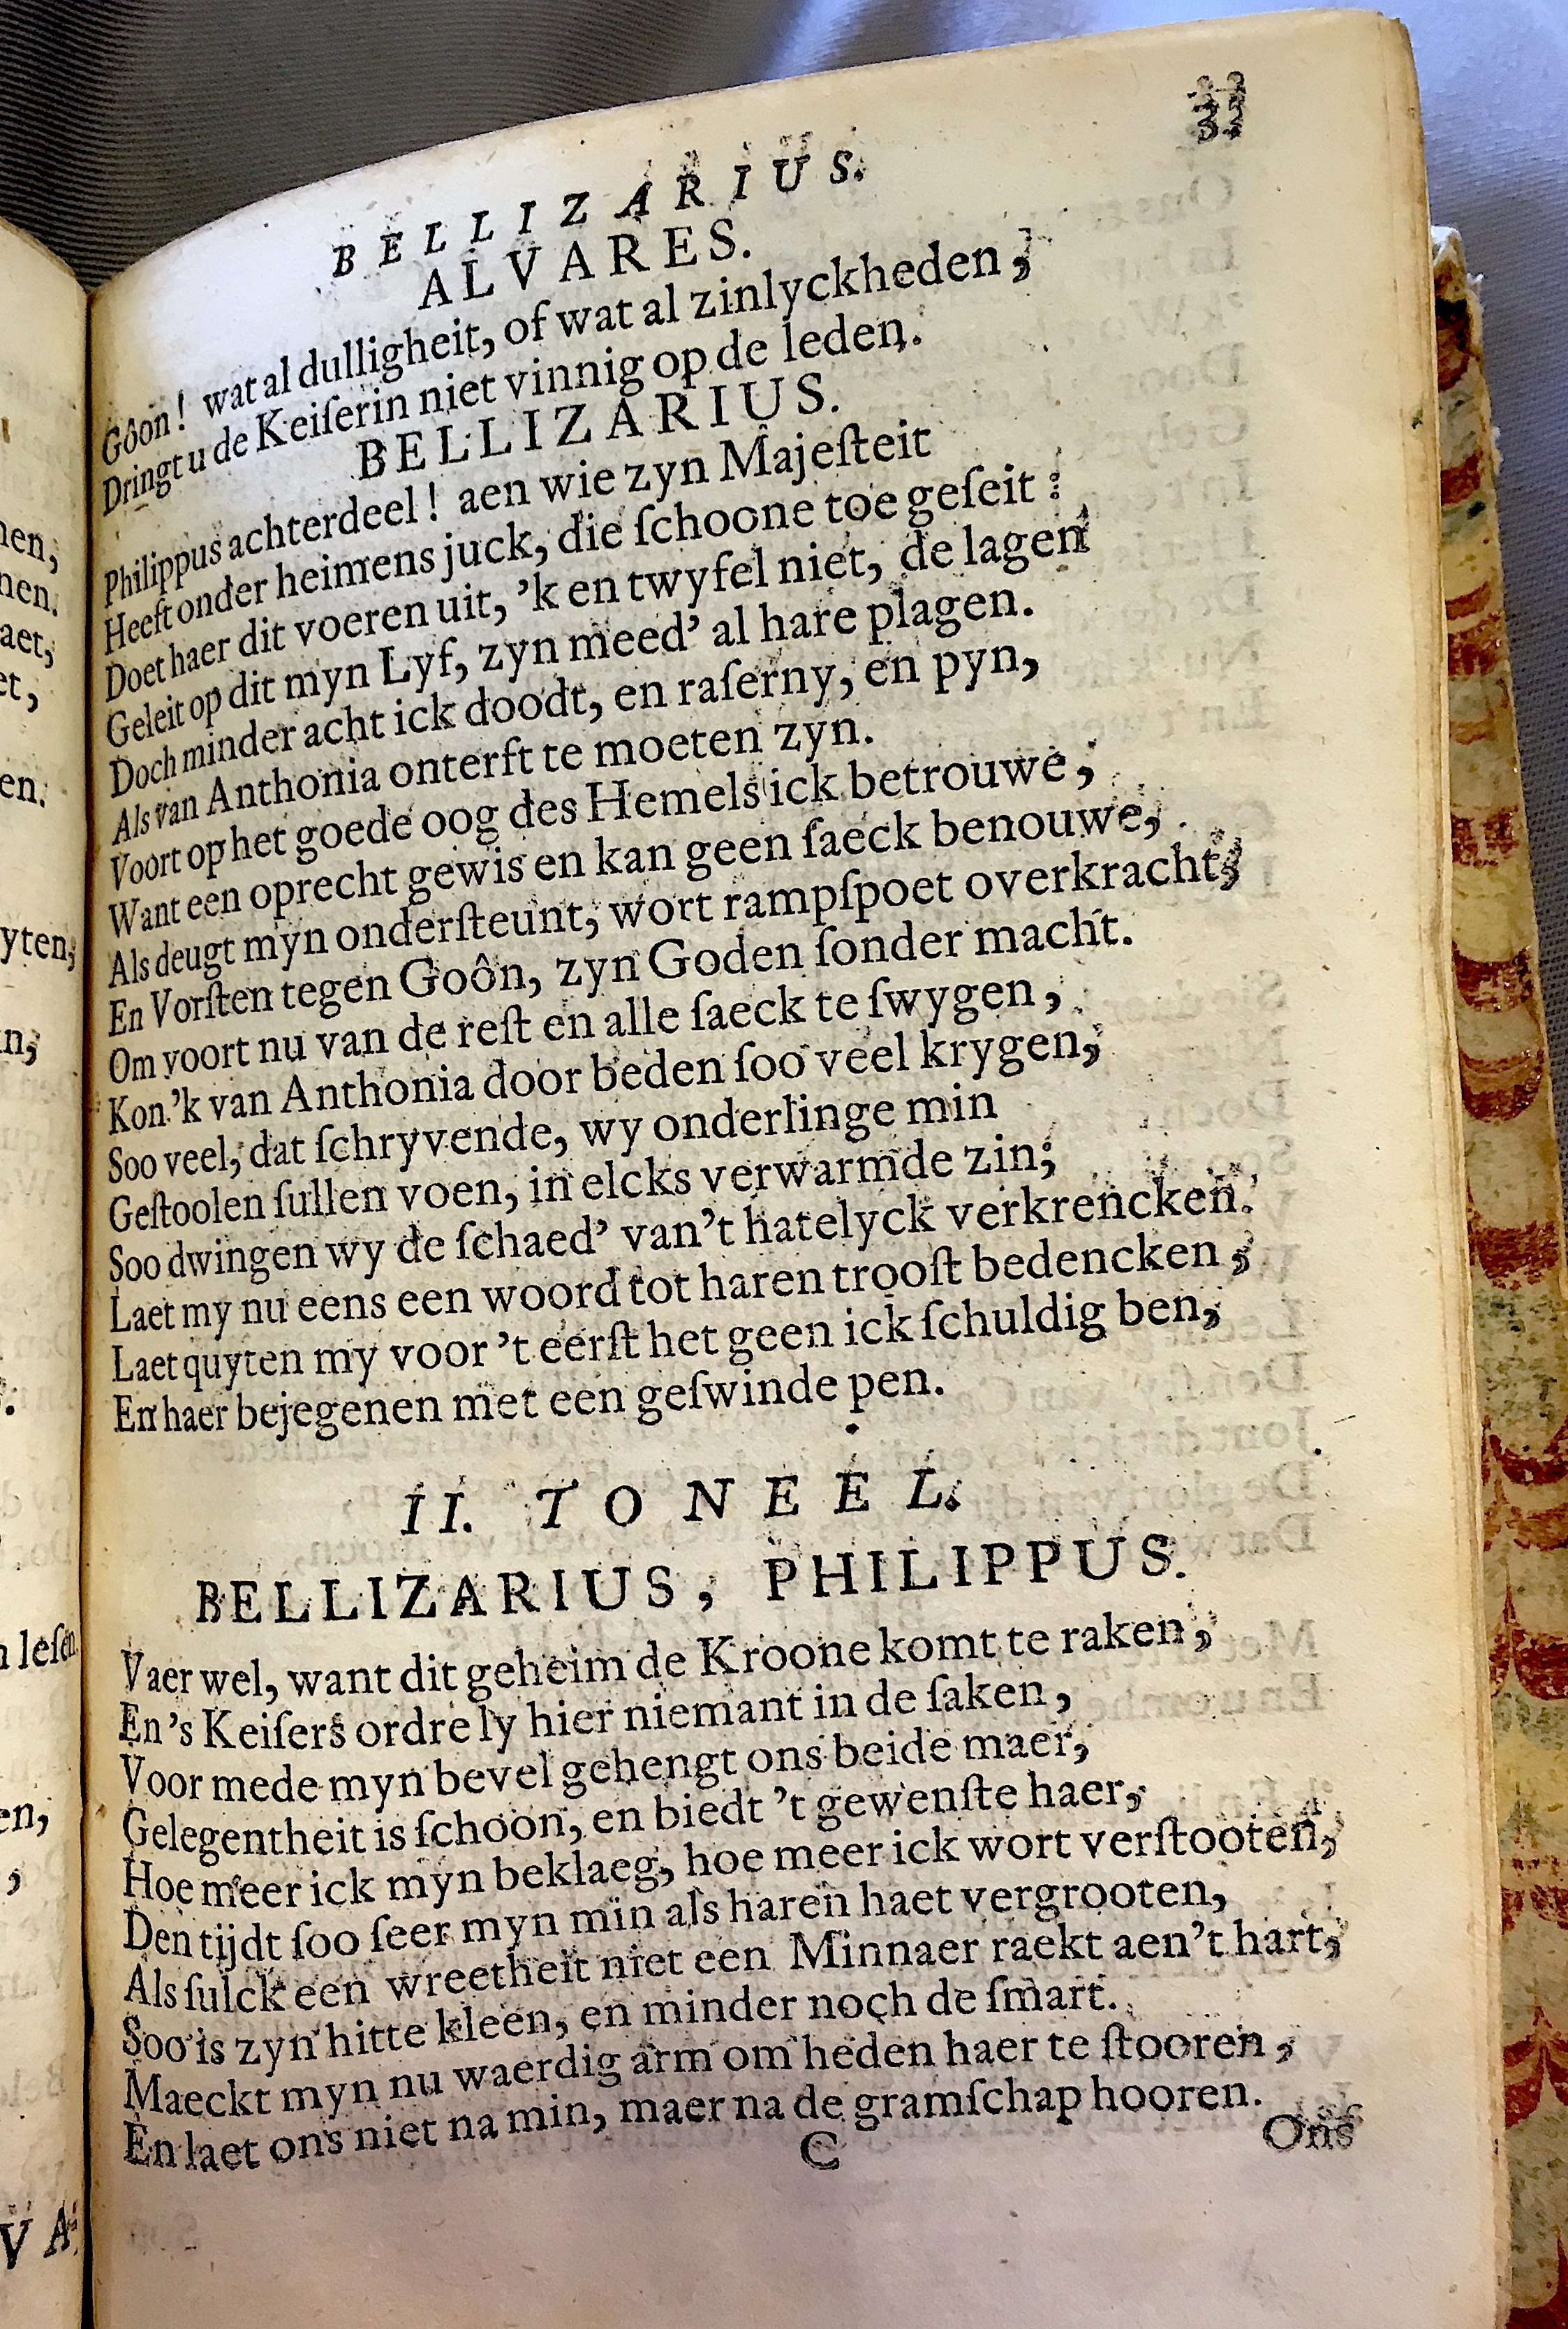 33
BELLIZARIUS.
ALVARES.
Gôon! wat al dulligheit, of wat al zinlyckheden,
Dringt u de Keiſerin niet vinnig op de leden.
BELLIZARIUS.
Philippus achterdeel! aen wie zyn Majeſteit
Heeft onder heimens juck, die ſchoone toe geſeit:
Doet haer dit voeren uit, 'k en twyfel niet, de lagen
Geleit op dit myn Lyf, zyn meed' al hare plagen.
Doch minder acht ick doodt, en raſerny, en pyn,
Als van Anthonia onterft te moeten zyn.
Voort op het goede oog des Hemels ick betrouwe,
Want een oprecht gewis en kan geen ſaeck benouwe,
Als deugt myn onderſteunt, wort rampſpoet overkracht,
En Vorſten tegen Goôn, zyn Goden ſonder macht.
Om voort nu van de reſt en alle ſaeck te ſwygen,
Kon 'k van Anthonia door beden ſoo veel krygen,
Soo veel, dat ſchryvende, wy onderlinge min
Geſtoolen ſullen voen, in elcks verwarmde zin;
Soo dwingen wy de ſchaed' van't hatelyck verkrencken.
Laet my nu eens een woord tot haren trooſt bedencken,
Laet quyten my voor 't eerſt het geen ick ſchuldig ben,
En haer bejegenen met een geſwinde pen.
II. TONEEL.
BELLIZARIUS, PHILIPPUS.
Vaer wel, want dit geheim de Kroone komt te raken,
En 's Keiſers ordre ly hier niemant in de ſaken,
Voor mede myn bevel gehengt ons beide maer,
Gelegentheit is ſchoon, en biedt 't gewenſte haer,
Hoe meer ick myn beklaeg, hoe meer ick wort verſtooten,
Den tijdt ſoo ſeer myn min als haren haet vergrooten,
Als ſulck een wreetheit niet een Minnaer raekt aen't hart,
Soo is zyn hitte kleen, en minder noch de ſmart.
Maeckt myn nu waerdig arm om heden haer te ſtooren,
En laet ons niet na min, maer na de gramſchap hooren.
C
Ons